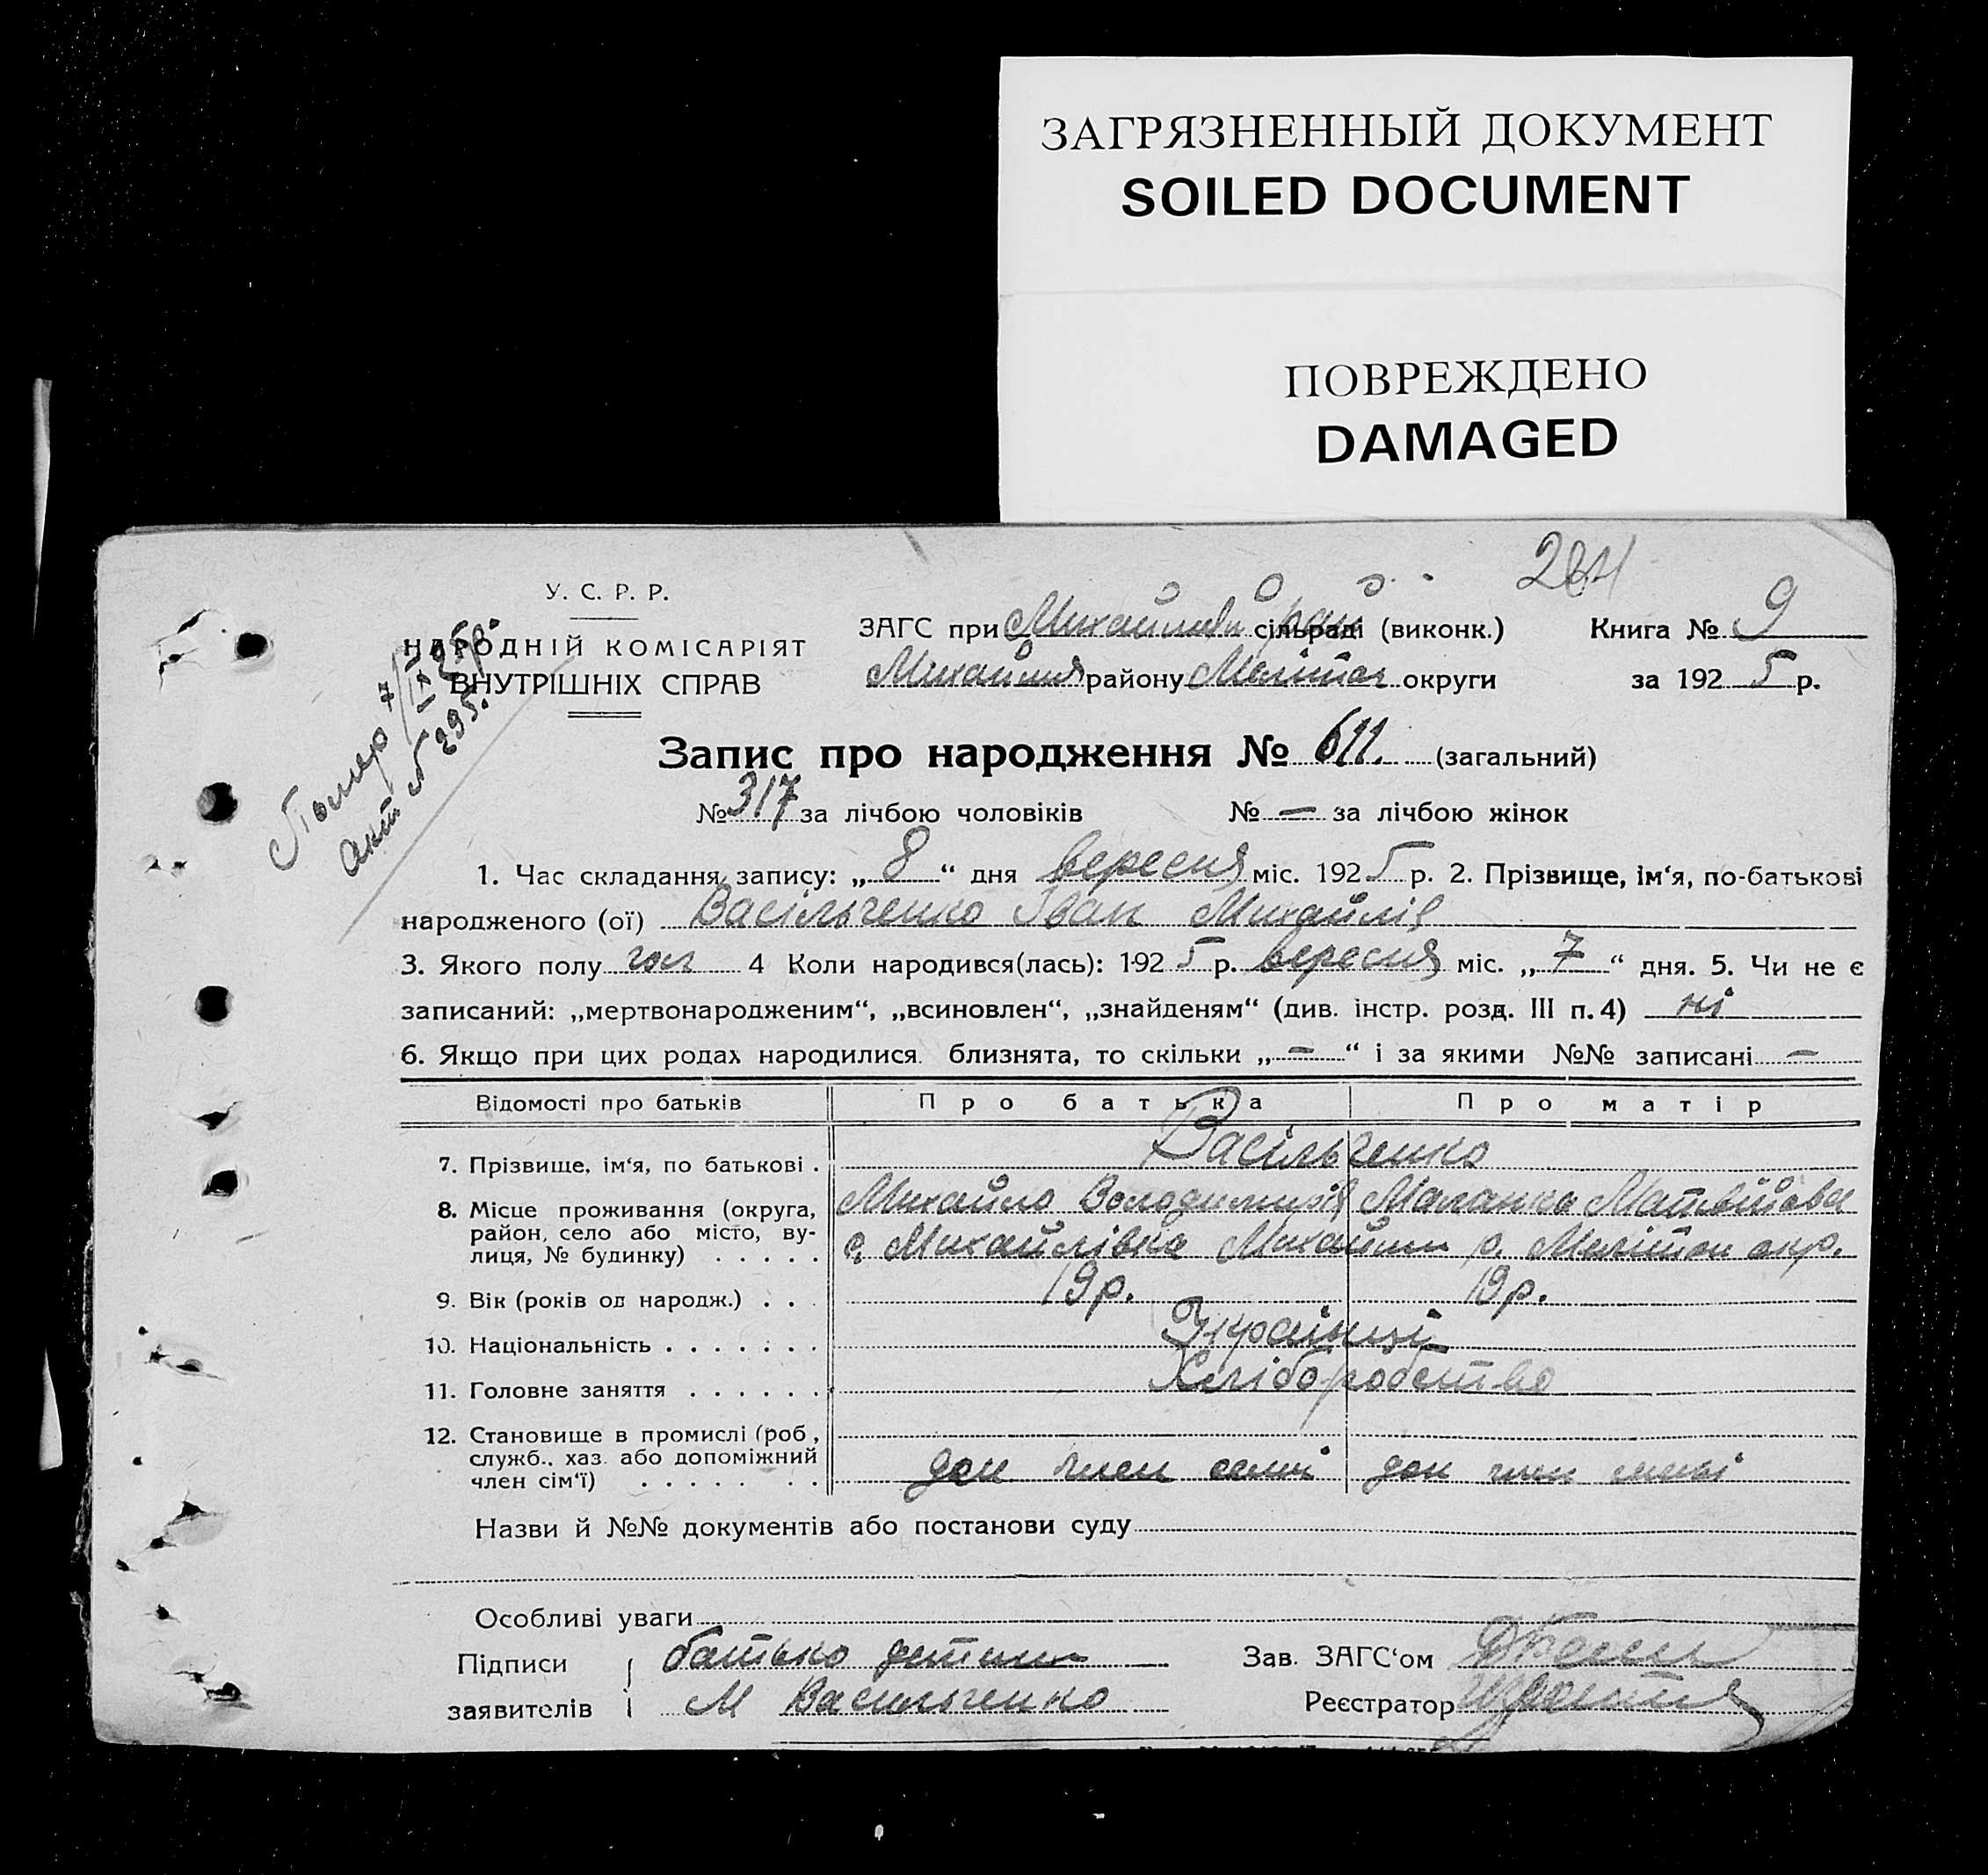 ЗАГРЯЗНЕННЫЙ ДОКУМЕНТ
SOILED DOCUMENT
ПОВРЕЖДЕНО
DAMAGED
У. С. Р. Р.
НАРОДНІЙ КОМІСАРІЯТ
ВНУТРІШНІХ СПРАВ
Помер 7/IX 25р.
акт № 295.
ЗАГС при сільраді (виконк.) Книга № 9
району округи за 1925 р.
Запис про народження № 611. (загальний)
№ 317 за лічбою чоловіків № — за лічбою жінок
1. Час складання запису: „8“ дня вересня міс. 1925 р. 2. Прізвище, ім‘я, по-батькові
народженого (ої) Васільченко Іван Михайлів
3. Якого полу чол 4 Коли народився(лась): 1925 р. вересня міс. „7“ дня. 5. Чи не є
записаний: „мертвонародженим“, „всиновлен“, „знайденям“ (див. інстр. розд. III п. 4) ні
6. Якщо при цих родах народилися близнята, то скільки „—“ і за якими №№ записані —
Відомості про батьків Про батька Про матір
7. Прізвище, ім‘я, по батькові . Васільченко
8. Місце проживання (округа, Михайло Володимирів Маланка Матвійова
район, село або місто, ву- с. Михайлівка р. Меліт окр.
лиця, № будинку) . . . . .
9. Вік (років од народж.) . . 19 р. 19 р.
10. Національність . . . . . . . Українці
11. Головне заняття . . . . . . Хліборобство
12. Становище в промислі (роб.,
служб., хаз. або допоміжний доп член семі доп член семі
член сім‘ї) . . . . . . .
Назви й №№ документів або постанови суду
Особливі уваги
Підписи батько дитини Зав. ЗАГС‘ом
заявителів М Васильченко Реєстратор